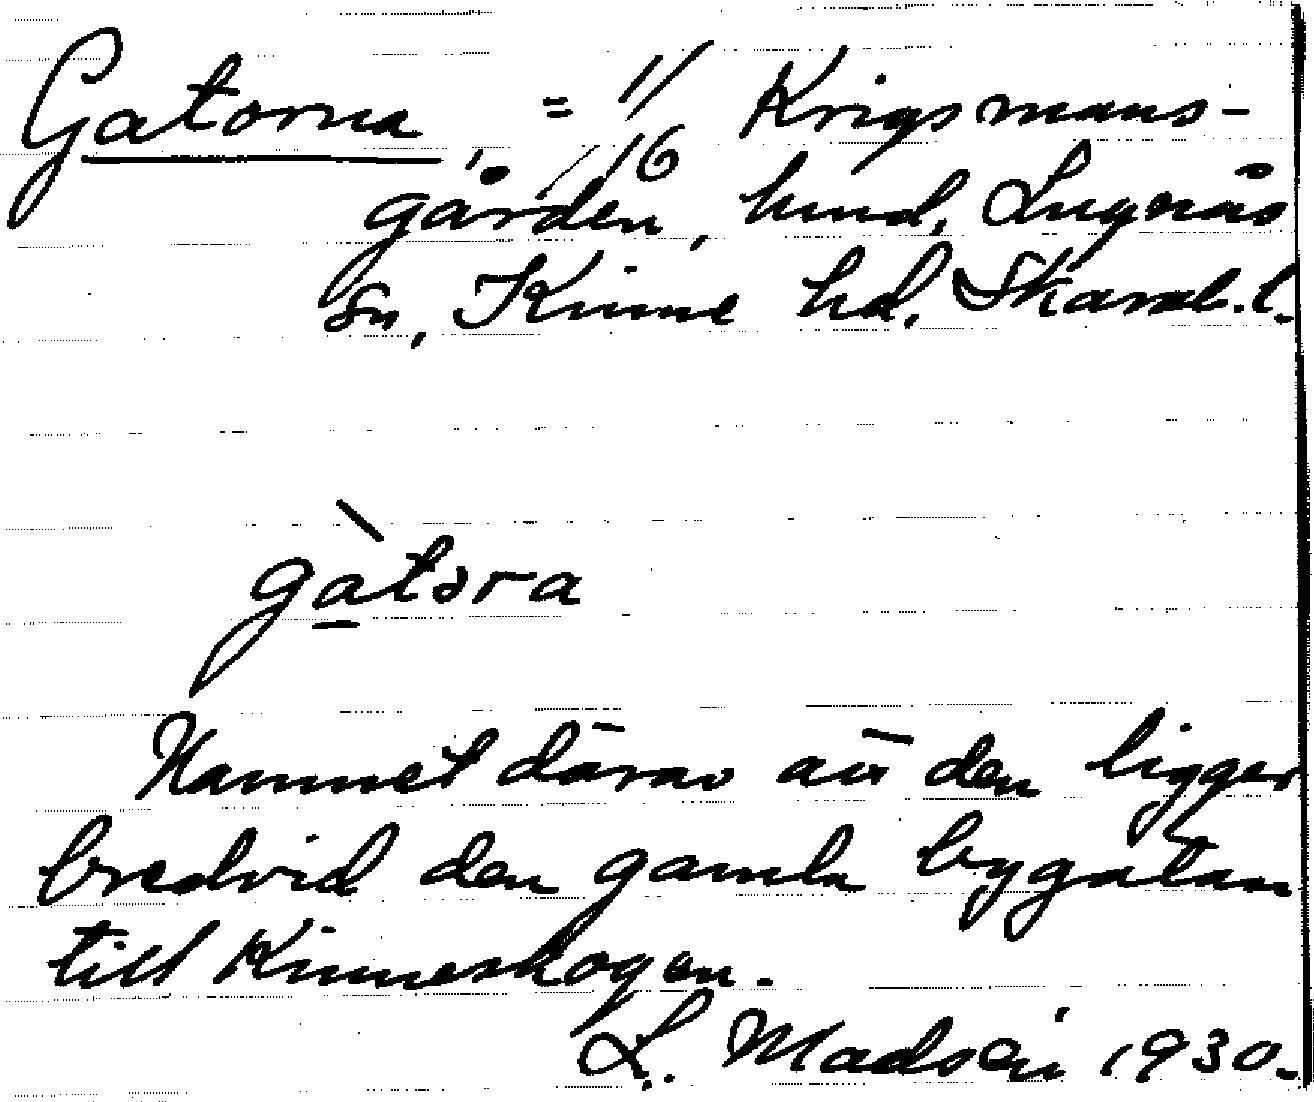 Gatorna = 1/16 Krigsmans-
gården, hmd, Lugnås
sn, Kinne hd, Skarab.l.
gàtora
Namnet därav att den ligger
bredvid den gamla bygatan
till Kinneskogen.
L. Madsén 1930.